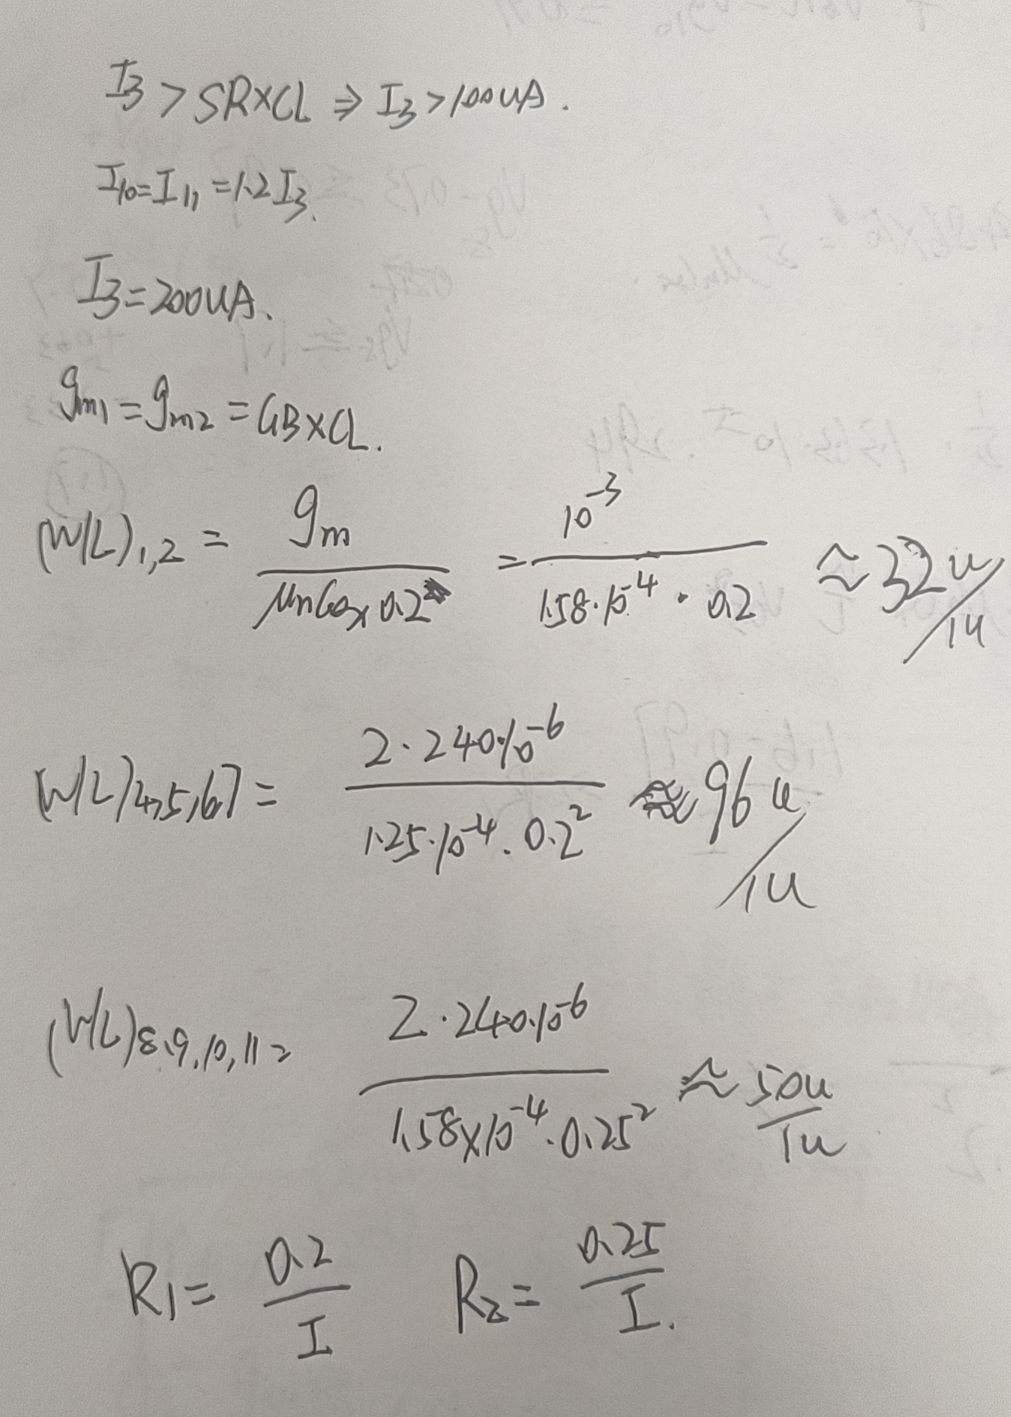 I3 > SR×CL ⇒ I3 > 100uA.
I10=I11=1.2I3.
I3=200uA.
gm1=gm2=GB×CL.
(W/L)1,2 = gm/(μnCox 0.2) = 10^-3/(1.58·10^-4 · 0.2) ≈ 32u/1u
(W/L)4,5,6,7 = 2·240·10^-6/(1.25·10^-4 · 0.2^2) ≈ 96u/1u
(W/L)8.9.10,11 = 2·240·10^-6/(1.58×10^-4 · 0.25^2) ≈ 50u/1u
R1 = 0.2/I R2 = 0.25/I.